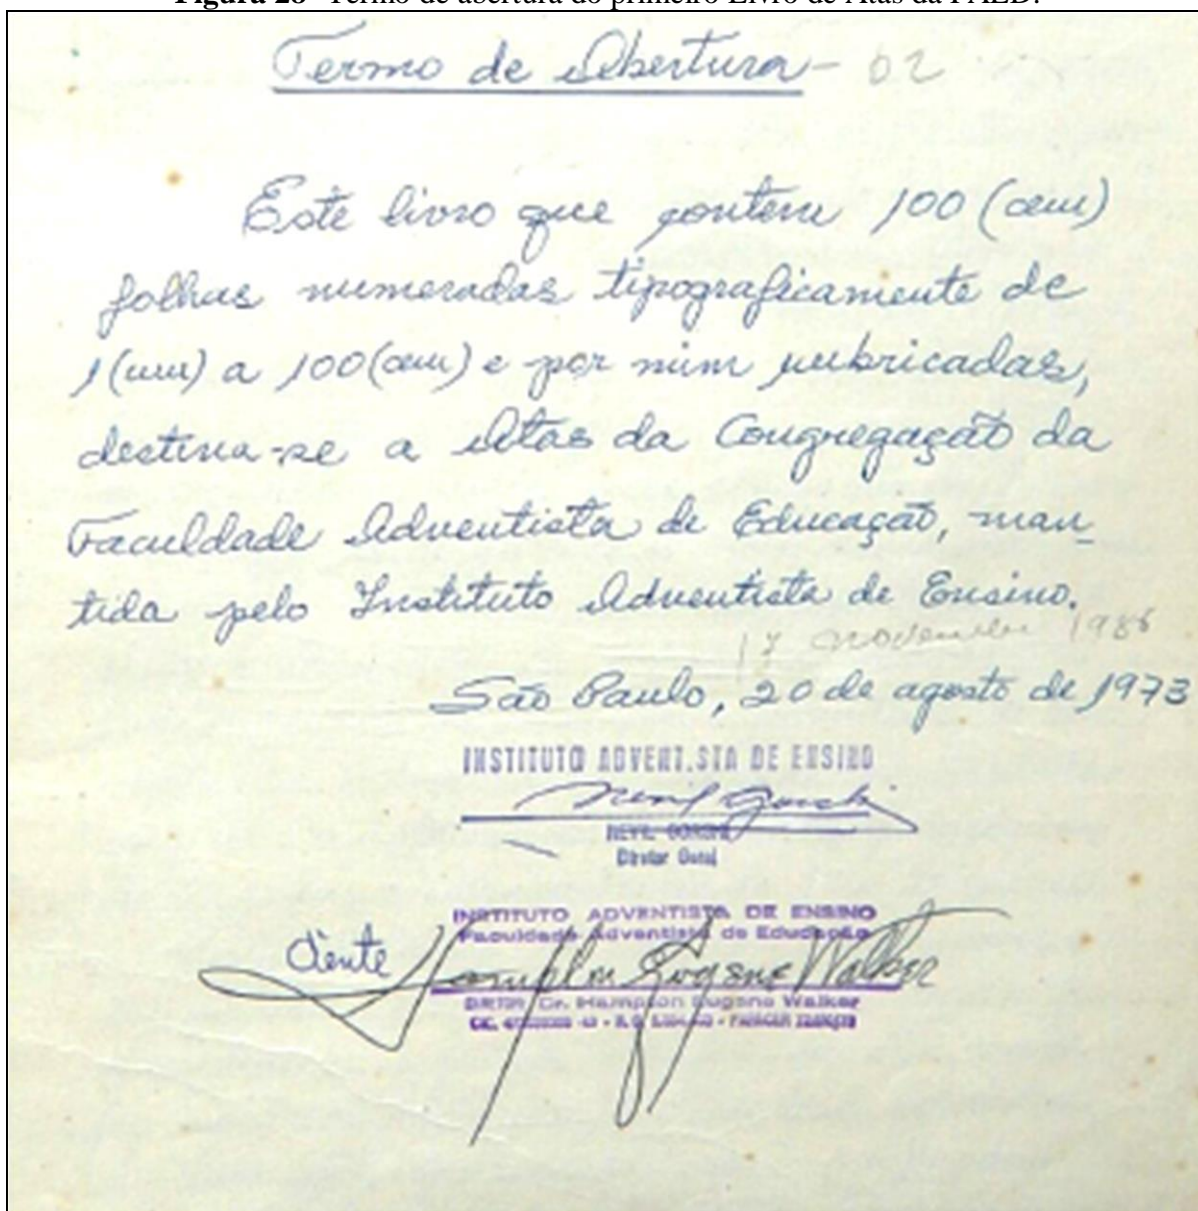 Figura 28- Termo de abertura do primeiro Livro de Atas da FAED.
Termo de Abertura - 02
Este livro que contem 100 (cem)
folhas numeradas tipograficamente de
1 (um) a 100 (cem) e por mim rubricadas,
destina-se a Atas da Congregação da
Faculdade Adventista de Educação, man-
tida pelo Instituto Adventista de Ensino.
17 novembro 1986
São Paulo, 20 de agosto de 1973
INSTITUTO ADVENTISTA DE ENSINO
NEVIL GORSKI
Diretor Geral
INSTITUTO ADVENTISTA DE ENSINO
Faculdade Adventista de Educação
Ciente Hampton Eugene Walker
Dr. Hampton Eugene Walker